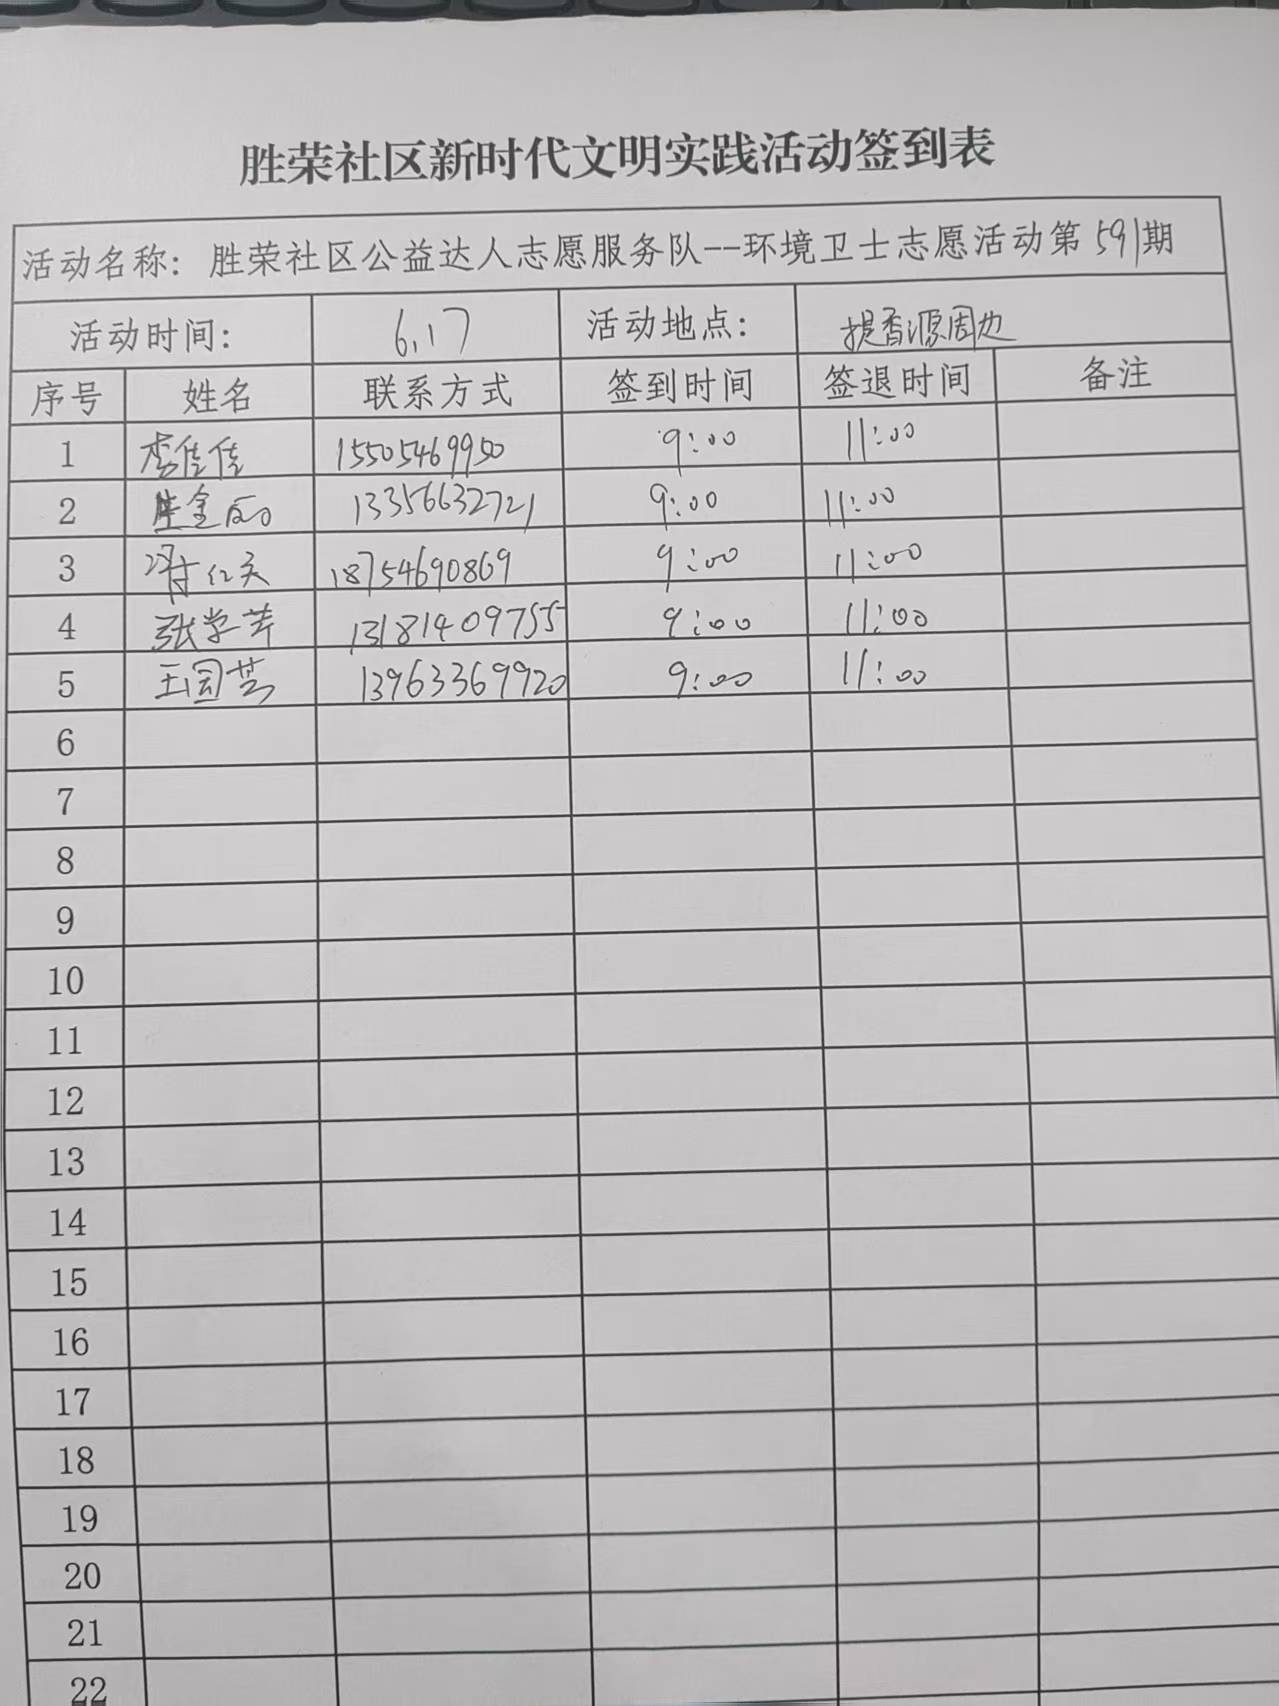 胜荣社区新时代文明实践活动签到表
活动名称：胜荣社区公益达人志愿服务队--环境卫士志愿活动第591期
活动时间： 6.17 活动地点： 提香源周边
序号 姓名 联系方式 签到时间 签退时间 备注
1 李佳佳 15505469950 9:00 11:00
2 13356632721 9:00 11:00
3 18754690869 9:00 11:00
4 张学芹 13181409755 9:00 11:00
5 王国芸 13963369920 9:00 11:00
6
7
8
9
10
11
12
13
14
15
16
17
18
19
20
21
22